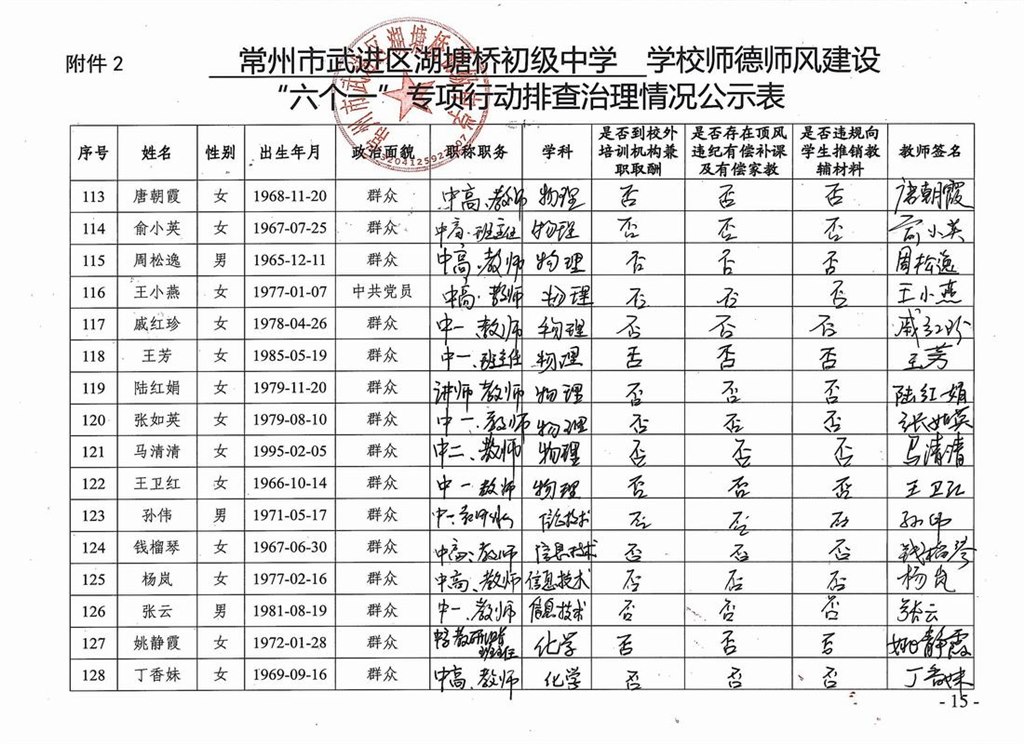 附件 2
常州市武进区湖塘桥初级中学 学校师德师风建设
“六个一”专项行动排查治理情况公示表
3204125922007
序号 姓名 性别 出生年月 政治面貌 职称职务 学科 是否到校外培训机构兼职取酬 是否存在顶风违纪有偿补课及有偿家教 是否违规向学生推销教辅材料 教师签名
113 唐朝霞 女 1968-11-20 群众 中高、教师 物理 否 否 否 唐朝霞
114 俞小英 女 1967-07-25 群众 中高·班主任 物理 否 否 否 俞小英
115 周松逸 男 1965-12-11 群众 中高·教师 物理 否 否 否 周松逸
116 王小燕 女 1977-01-07 中共党员 中高·教师 物理 否 否 否 王小燕
117 戚红珍 女 1978-04-26 群众 中一、教师 物理 否 否 否 戚红珍
118 王芳 女 1985-05-19 群众 中一、班主任 物理 否 否 否 王芳
119 陆红娟 女 1979-11-20 群众 讲师 教师 物理 否 否 否 陆红娟
120 张如英 女 1979-08-10 群众 中一、教师 物理 否 否 否 张如英
121 马清清 女 1995-02-05 群众 中二、教师 物理 否 否 否 马清清
122 王卫红 女 1966-10-14 群众 中一 教师 物理 否 否 否 王卫红
123 孙伟 男 1971-05-17 群众 中一、 信息技术 否 否 否 孙伟
124 钱榴琴 女 1967-06-30 群众 中高、教师 信息技术 否 否 否 钱榴琴
125 杨岚 女 1977-02-16 群众 中高、教师 信息技术 否 否 否 杨岚
126 张云 男 1981-08-19 群众 中一、教师 信息技术 否 否 否 张云
127 姚静霞 女 1972-01-28 群众 班主任 化学 否 否 否 姚静霞
128 丁香妹 女 1969-09-16 群众 中高、教师 化学 否 否 否 丁香妹
- 15 -